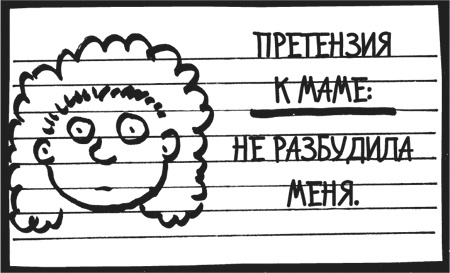 ПРЕТЕНЗИЯ
К МАМЕ:
НЕ РАЗБУДИЛА
МЕНЯ.